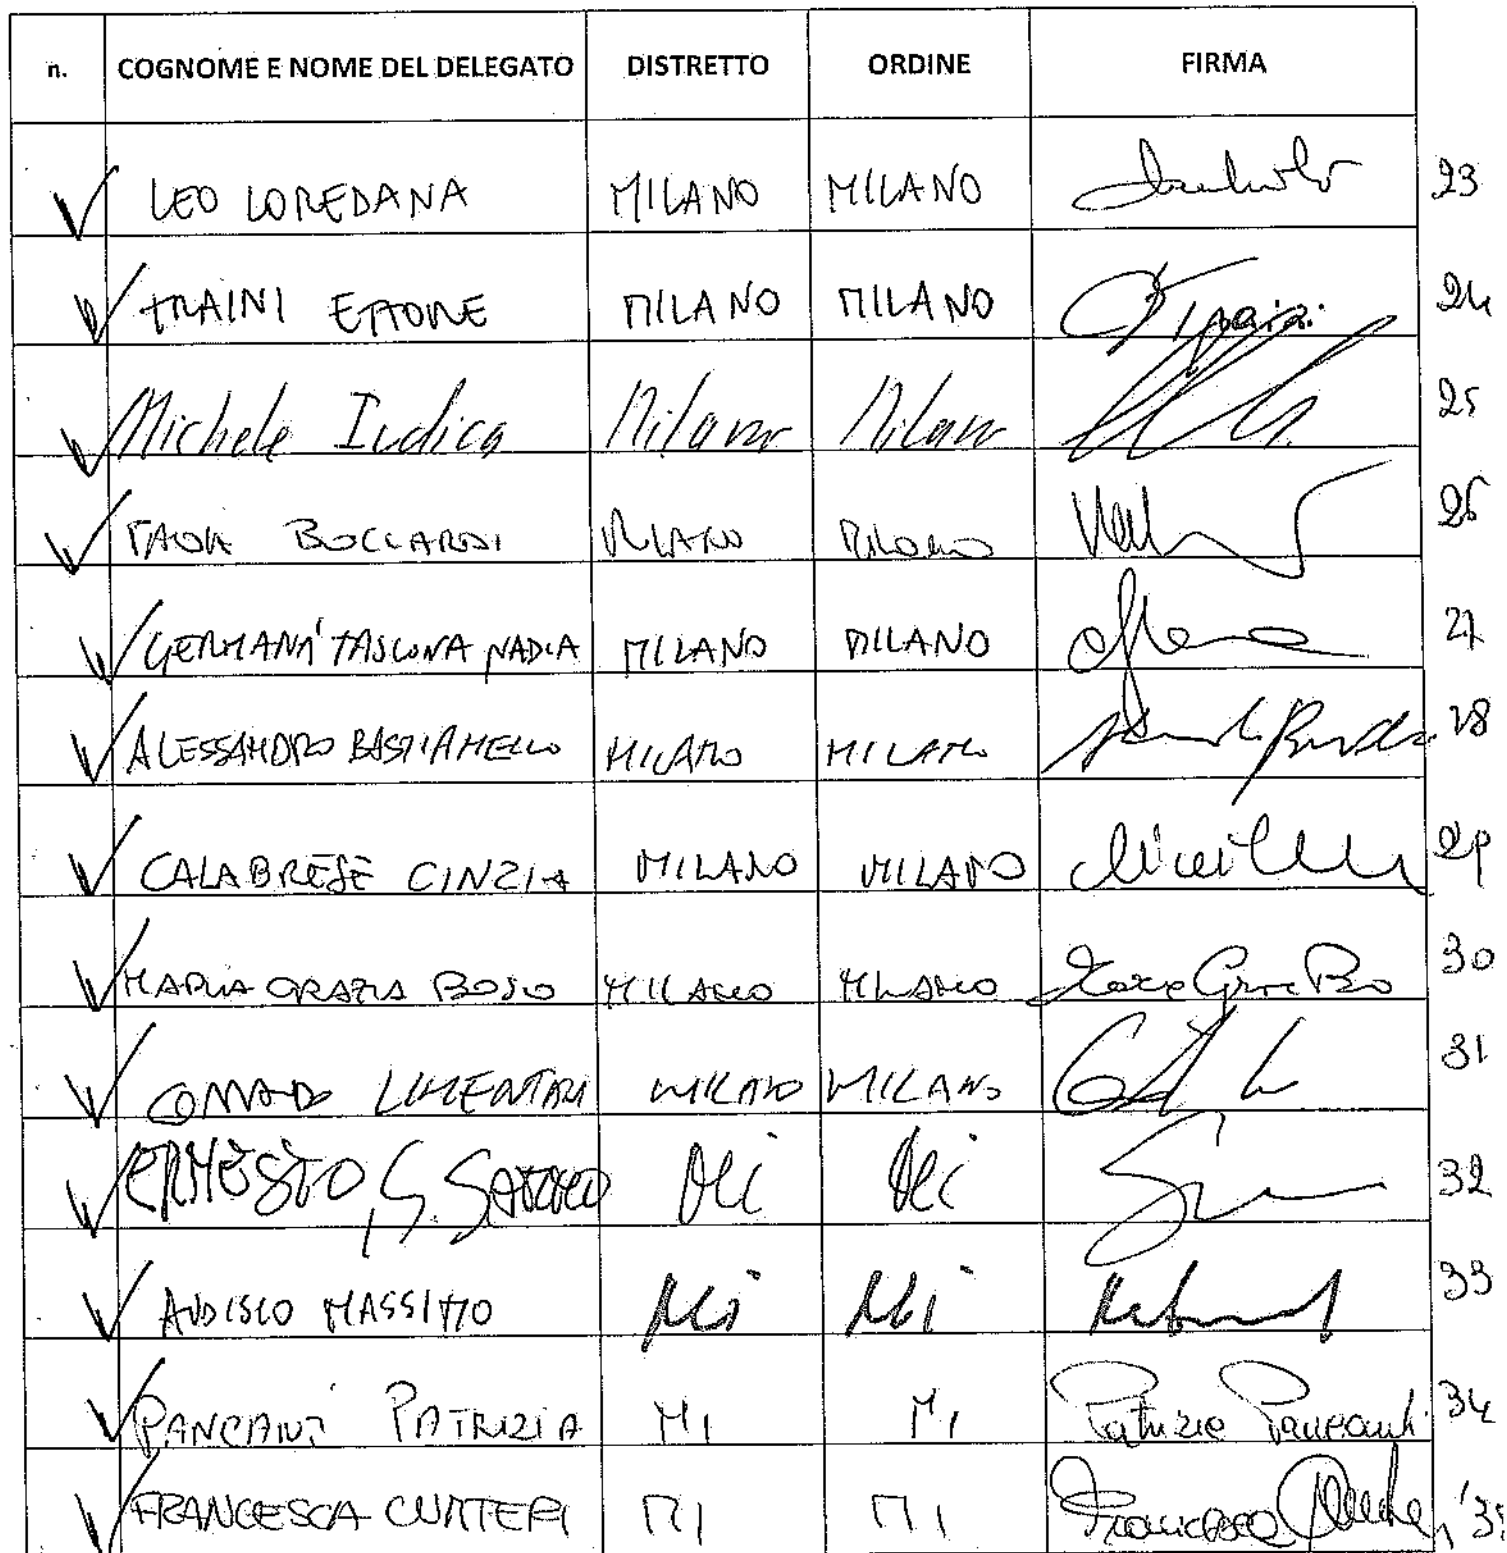 n. COGNOME E NOME DEL DELEGATO DISTRETTO ORDINE FIRMA
LEO LOREDANA MILANO MILANO 23
TRAINI ETTORE MILANO MILANO Traini 24
Michele Iudica Milano Milano 25
PAOLA BOCCARDI MILANO Milano 26
GERMANA' TASCONA NADIA MILANO MILANO 27
ALESSANDRO BASTIANELLO MILANO MILANO 28
CALABRESE CINZIA MILANO MILANO 29
MARIA GRAZIA BOSO MILANO MILANO 30
CORRADO LIMENTANI MILANO MILANO 31
ERNESTO, G. Mi Mi 32
AUDISIO MASSIMO Mi Mi 33
PANCANTI PATRIZIA MI MI Patrizia Pancanti 34
FRANCESCA CUNTERI MI MI Francesca 35